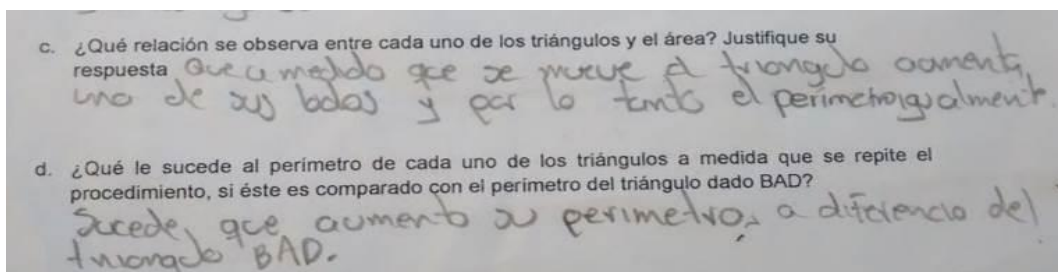 c. ¿Qué relación se observa entre cada uno de los triángulos y el área? Justifique su
respuesta Que a medida que se mueve el triangulo aumenta,
uno de sus lados y por lo tanto el perimetro igualment.
d. ¿Qué le sucede al perímetro de cada uno de los triángulos a medida que se repite el
procedimiento, si éste es comparado con el perímetro del triángulo dado BAD?
Sucede, que aumento su perimetro, a diferencia del
triangulo BAD.